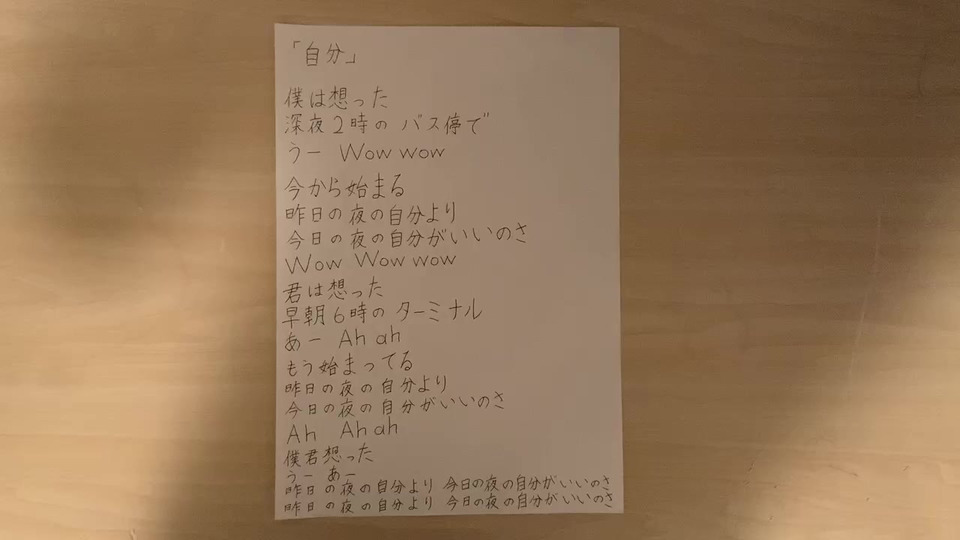 「自分」
僕は想った
深夜2時の バス停で
うー Wow wow
今から始まる
昨日の夜の自分より
今日の夜の自分がいいのさ
Wow Wow wow
君は想った
早朝6時の ターミナル
あー Ah ah
もう始まってる
昨日の夜の自分より
今日の夜の自分がいいのさ
Ah Ah ah
僕君想った
うー あー
昨日の夜の自分より 今日の夜の自分がいいのさ
昨日の夜の自分より 今日の夜の自分がいいのさ